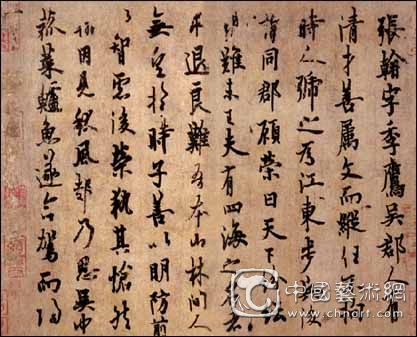 張翰字季鷹吳郡人有
清才善属文而縱任不拘
時人號之為江東步兵後
謂同郡顧榮曰天下紛紜
禍難未已夫有四海之名者
求退良難吾本山林間人
無望於時子善以明防前
以智慮後榮執其愴然
翰因見秋風起乃思吳中
菰菜鱸魚遂命駕而歸
中國藝術網
www.chnart.com